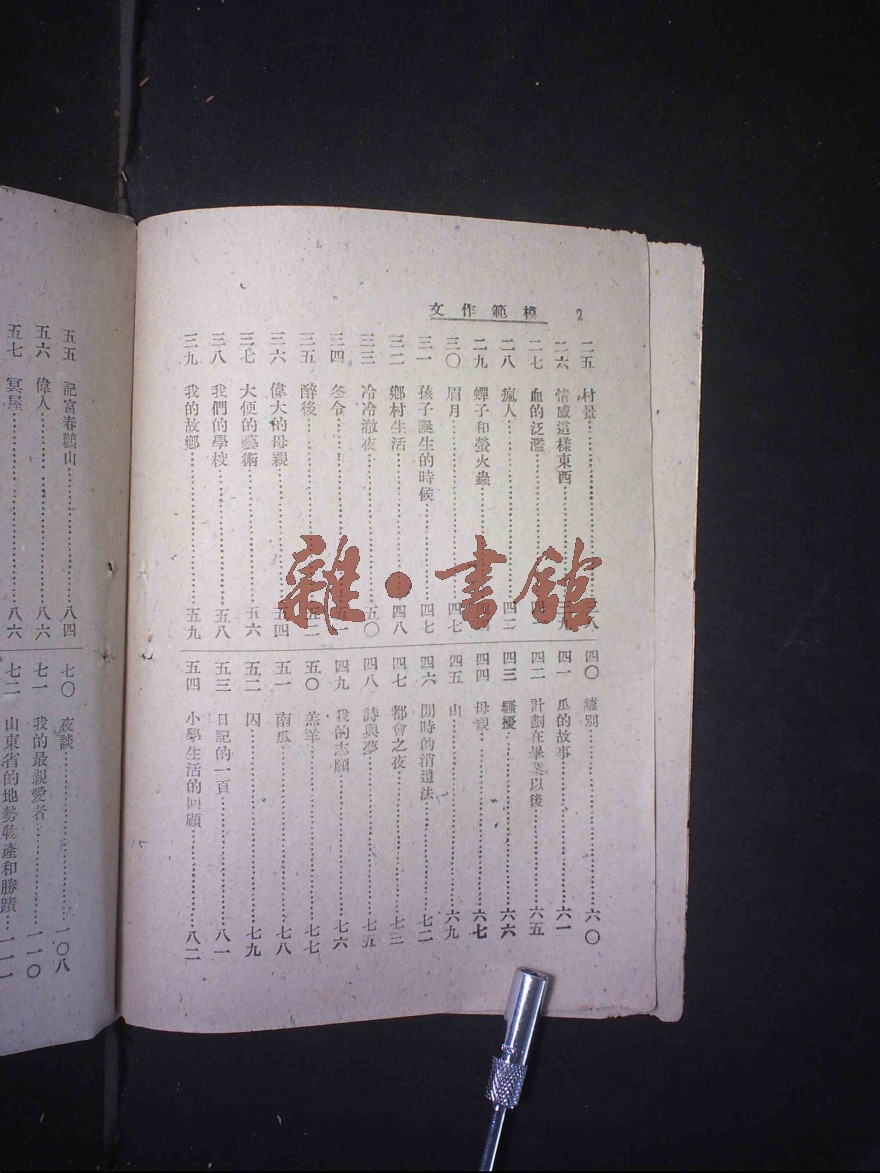 2 模範作文
二五 村景
二六 情感這樣東西
二七 血的泛濫
二八 瘋人 四二
二九 蟬子和螢火蟲
三〇 眉月 四七
三一 孩子誕生的時候 四七
三二 鄉村生活 四八
三三 冷冷澈夜 五〇
三四 冬令
三五 醉後
三六 偉大的母親 五四
三七 大便的藝術 五六
三八 我們的學校 五八
三九 我的故鄉 五九
四〇 離別 六〇
四一 瓜的故事 六一
四二 計劃在畢業以後 六五
四三 騷擾 六六
四四 母親 六七
四五 山 六九
四六 閒時的消遣法 七二
四七 都會之夜 七三
四八 詩與夢 七五
四九 我的志願 七六
五〇 羔羊 七七
五一 南瓜 七八
五二 囚 七九
五三 日記的一頁 八一
五四 小學生活的回顧 八二
五五 記富春鸛山 八四
五六 偉人 八六
五七 冥屋 八六
七〇 夜談 一〇八
七一 我的最親愛者 一一〇
七二 山東省的地勢物產和勝蹟 一一一
雜·書館